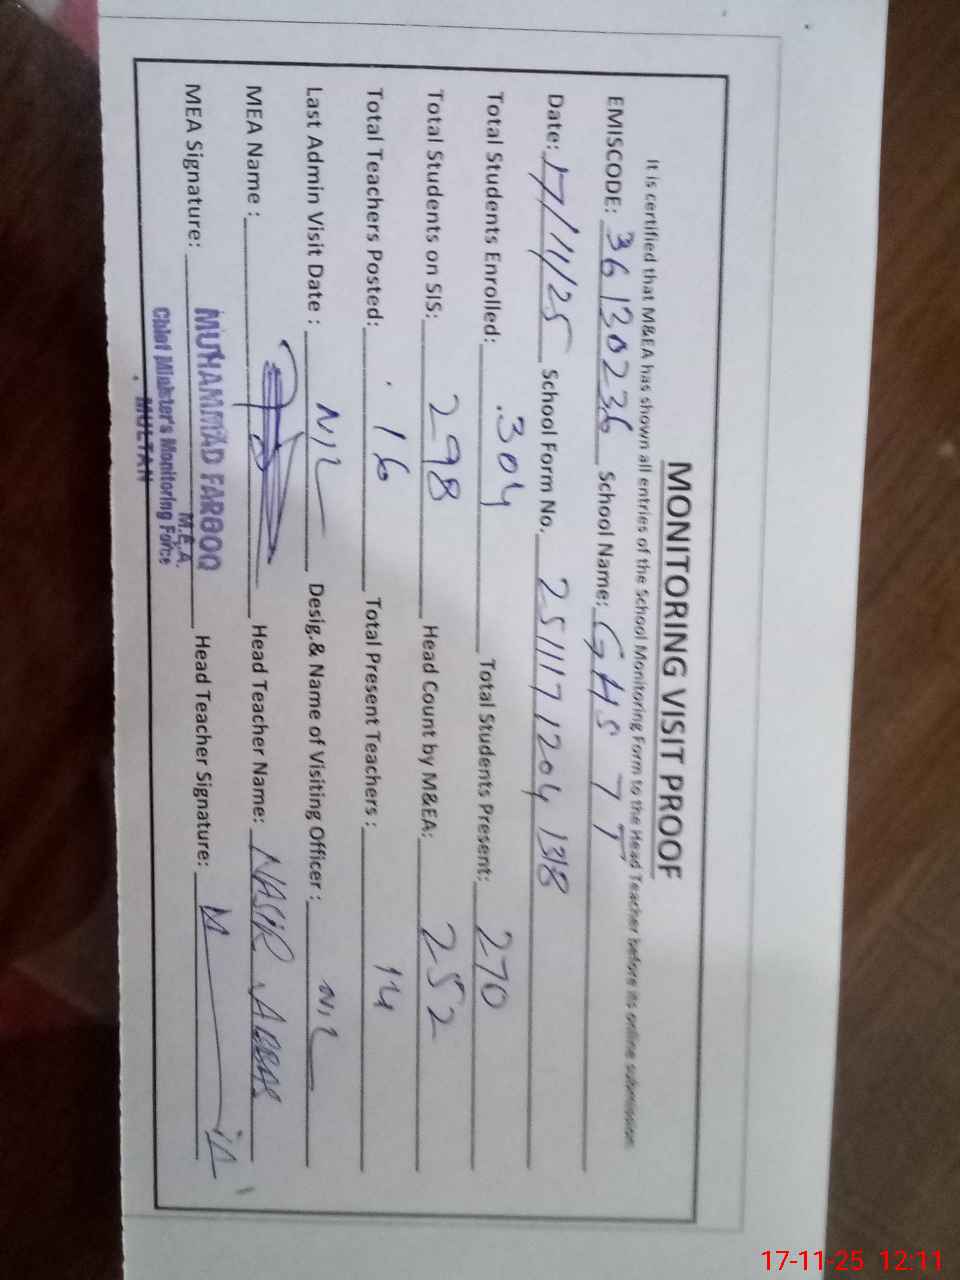 MONITORING VISIT PROOF
It is certified that M&EA has shown all entries of the School Monitoring Form to the Head Teacher before its online submission
EMISCODE: 36130236 School Name: GHS 7T
Date: 17/11/25 School Form No. 251117 1204 1318
Total Students Enrolled: 304 Total Students Present: 270
Total Students on SIS: 298 Head Count by M&EA: 252
Total Teachers Posted: 16 Total Present Teachers : 14
Last Admin Visit Date : NIL Desig.& Name of Visiting Officer : NIL
MEA Name : Head Teacher Name: NASIR ABBAS
MEA Signature: Head Teacher Signature:
MUHAMMAD FAROOQ
M.E.A.
Chief Minister's Monitoring Force
MULTAN
17-11-25 12:11